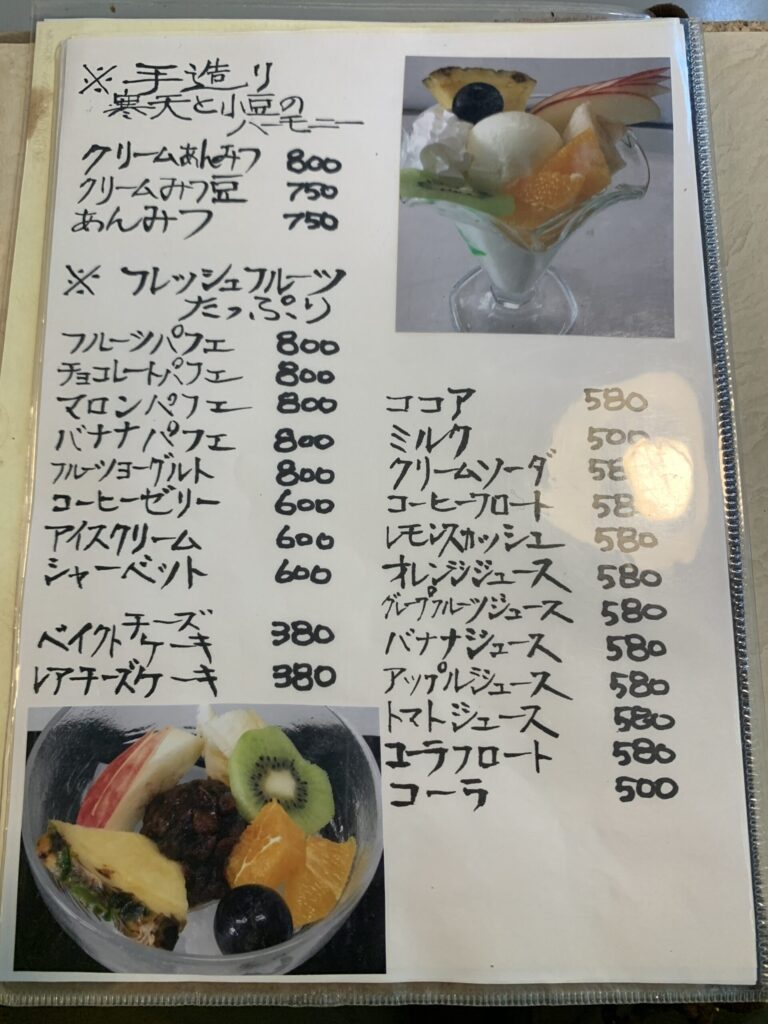 ※ 手造り
寒天と小豆の
ハーモニー
クリームあんみつ 800
クリームみつ豆 750
あんみつ 750
※ フレッシュフルーツ
たっぷり
フルーツパフェ 800
チョコレートパフェ 800
マロンパフェ 800
バナナパフェ 800
フルーツヨーグルト 800
コーヒーゼリー 600
アイスクリーム 600
シャーベット 600
ベイクトチーズ
ケーキ 380
レアチーズケーキ 380
ココア 580
ミルク 500
クリームソーダ
コーヒーフロート
レモンスカッシュ 580
オレンジジュース 580
グレープフルーツジュース 580
バナナジュース 580
アップルジュース 580
トマトジュース 580
コーラフロート 580
コーラ 500